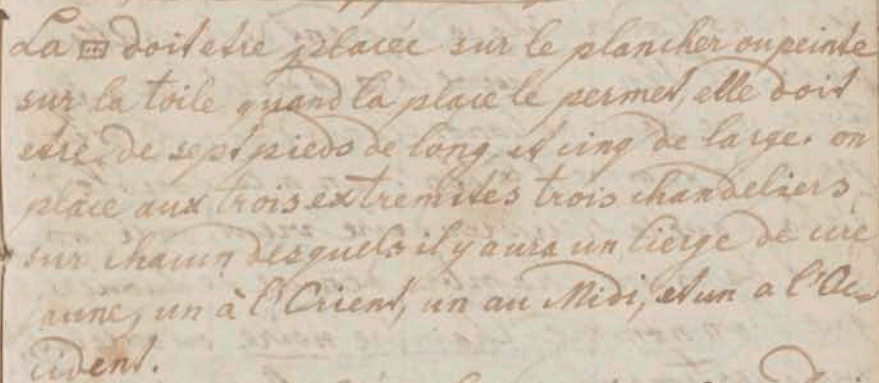 La doit estre placée sur le plancher ou peinte
sur la toile quand la place le permet, elle doit
estre de sept pieds de long et cinq de large. on
place aux trois extremités trois chandeliers
sur chacun desquels il y aura un cierge de cire
aune, un à l'Orient, un au Midi, et un a l'Oc=
cident.